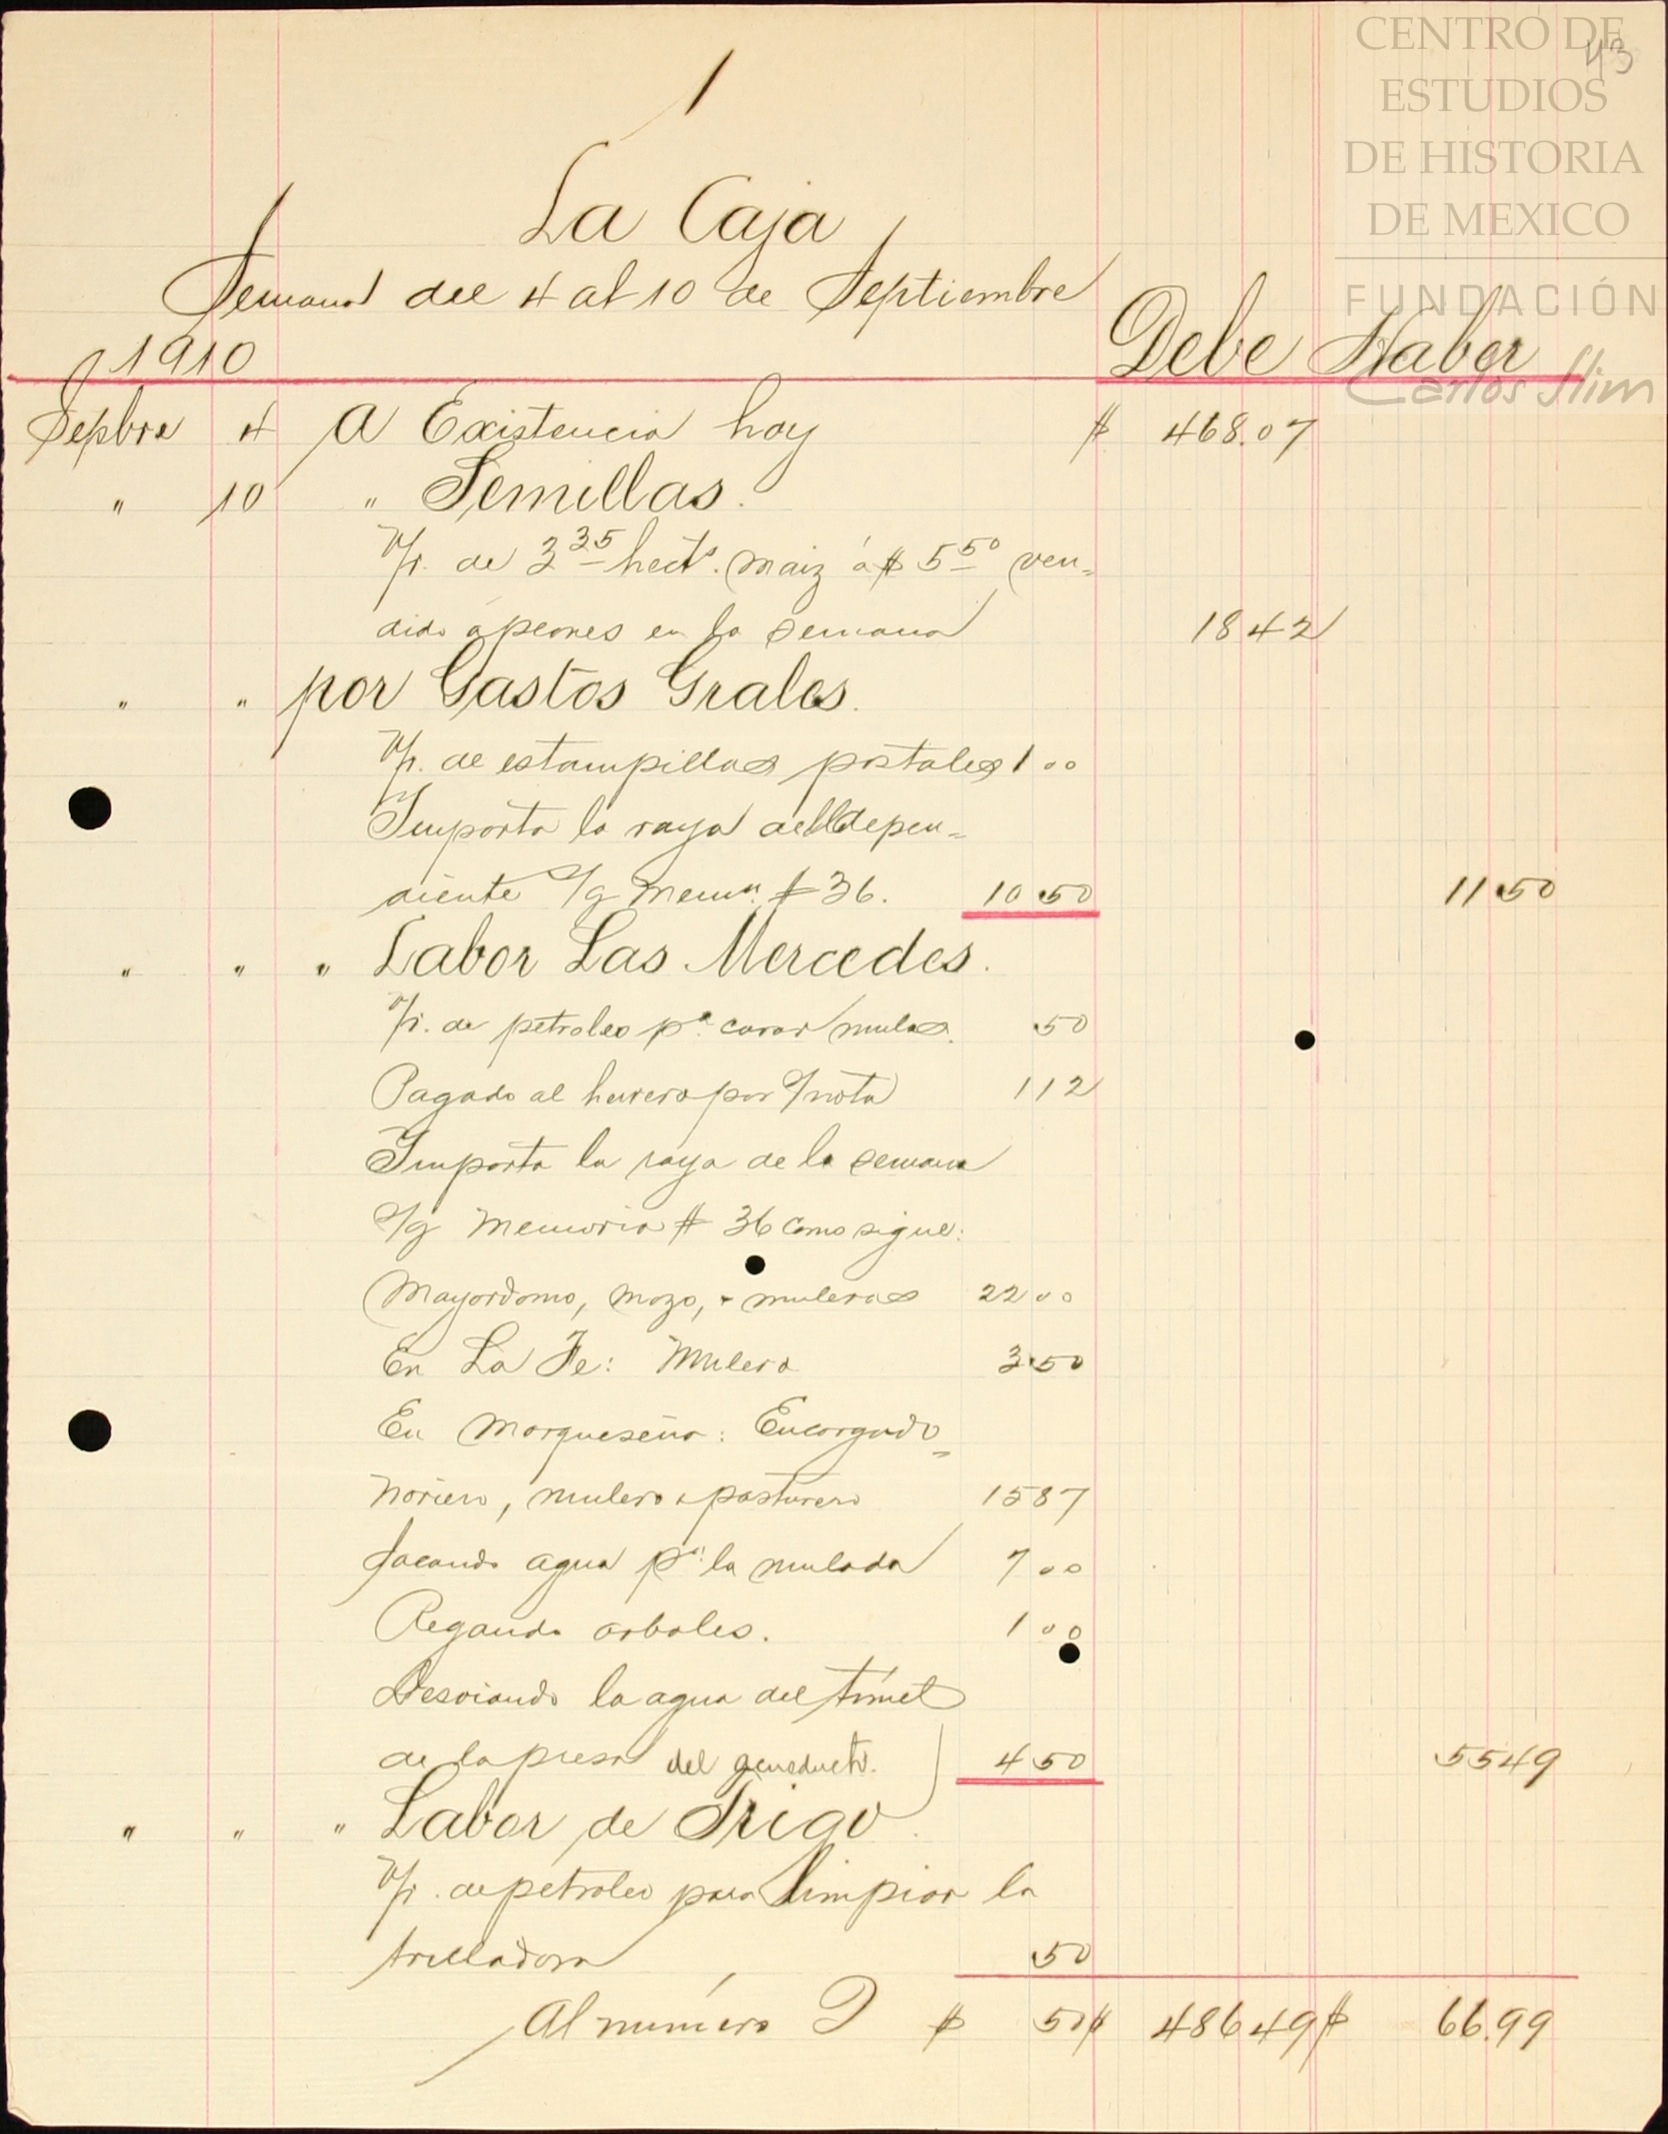 CENTRO DE
ESTUDIOS
DE HISTORIA
DE MEXICO
FUNDACIÓN
Carlos Slim
43
1
La Caja
Semana del 4 al 10 de Septiembre
1910 Debe Haber
Sepbre 4 A Existencia hoy $ 468.07
" 10 " Semillas.
V/r. de 3 35 hects. maiz á $ 5 50 ven=
dido á peones en la semana 18 42
" " por Gastos Grales.
V/r. de estampillas postales 1 00
Importa la raya del depen=
diente S/g Memª. # 36. 10 50 11 50
" " " Labor Las Mercedes.
V/r. de petroleo pª. curar mulas. 50
Pagado al herrero por S/nota 1 12
Importa la raya de la semana
S/g Memoria # 36 como sigue:
Mayordomo, mozo, y muleros 22 00
En La Fe: Mulero 3 50
En Marqueseña: Encargado=
Noriero, mulero y pasturero 15 87
Sacando agua pª. la mulada 7 00
Regando arboles. 1 00
Desviando la agua del túnel
de la presa del acueducto. 4 50 55 49
" " " Labor de Trigo.
V/r. de petroleo para limpiar la
trilladora 50
Al número 2 $ 50 $ 486 49 $ 66.99